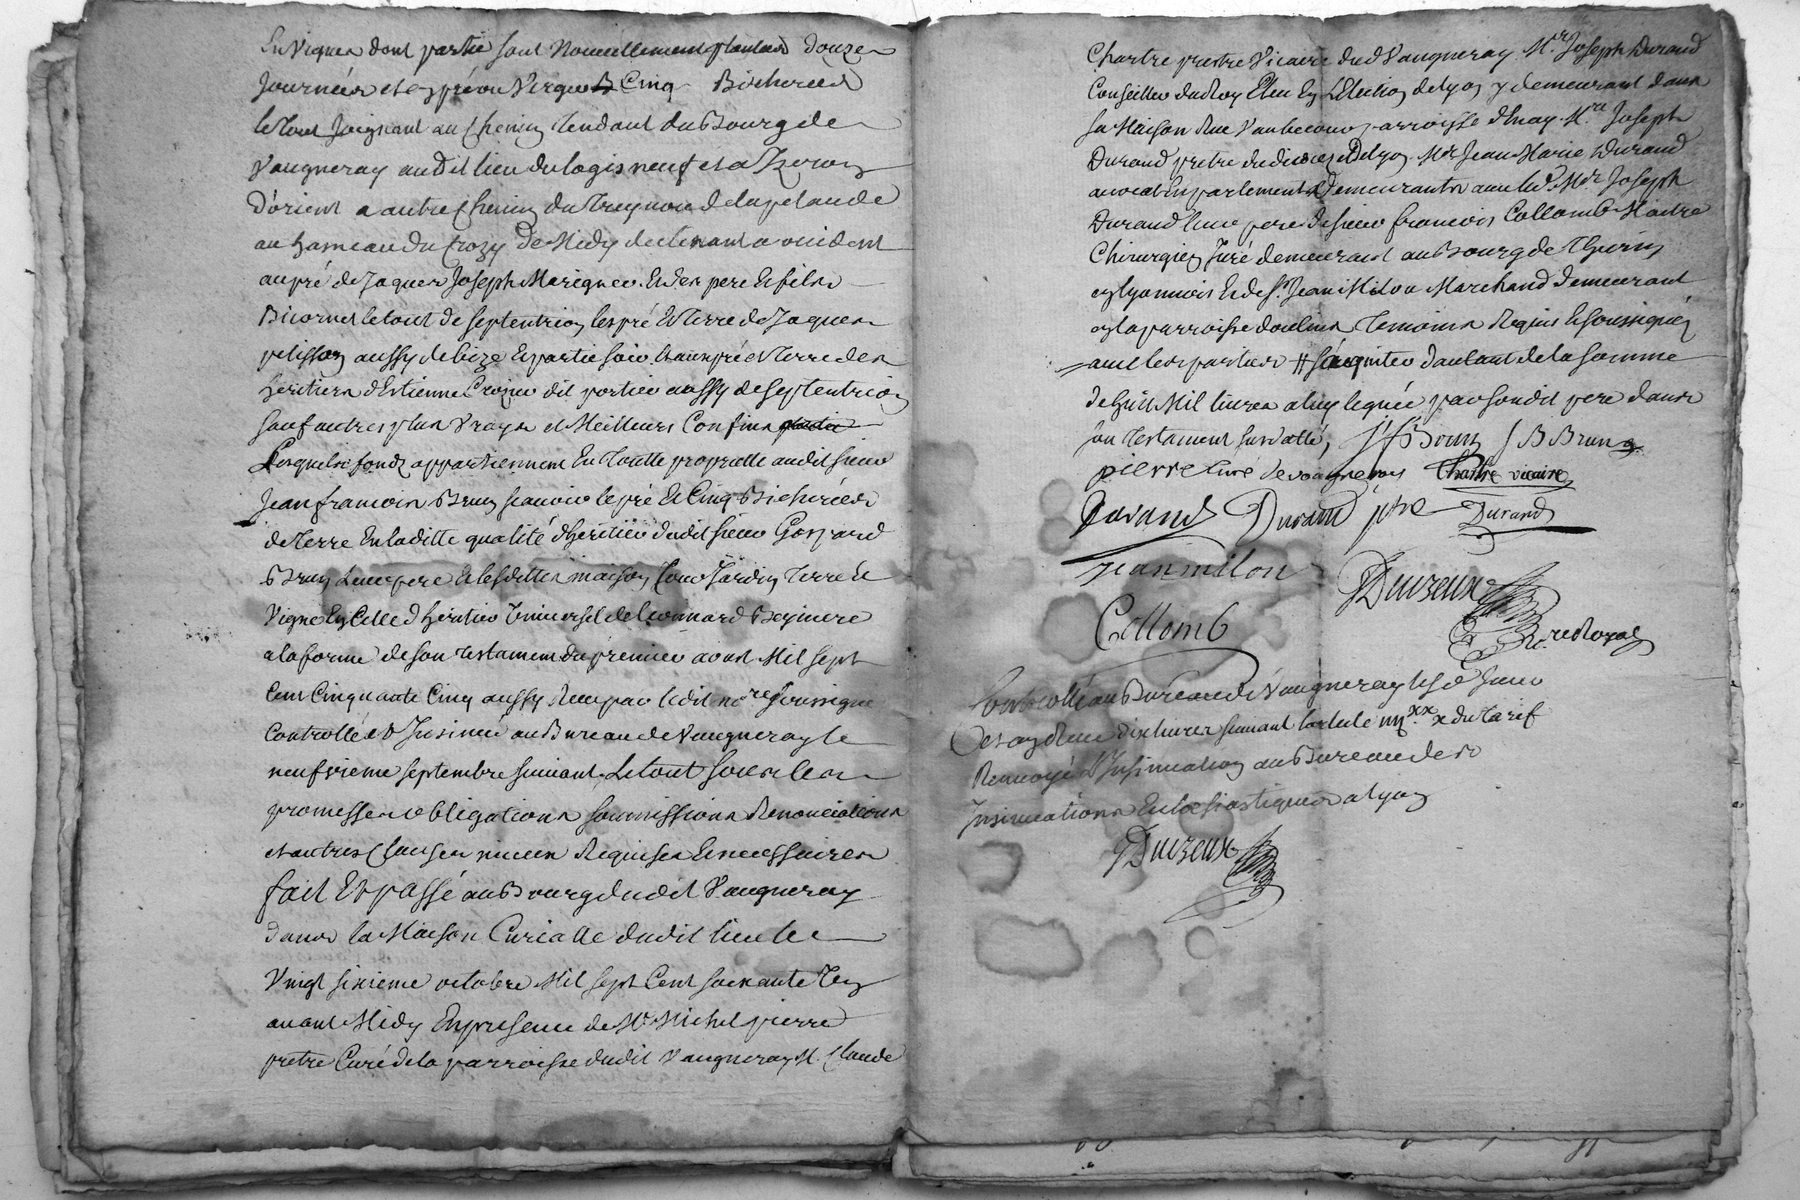 En vignes dont partie sont Nouvellement plantées douze
Journées et en pré ou Cinq Bicherées
le tout Joignant au Chemin Tendant du Bourg de
Vaugneray audit lieu du logis neuf et a
d'orient a autre Chemin du de la pelaude
au hameau du Crozy de Midy declinant a occident
au pré de Jaques Joseph pere et fils
le tout de septentrion les pré et Terre de Jaques
pelisson aussy de bize et partie soir et aux pré et Terre des
heritiers d'Estienne dit portier aussy de septentrion
sauf autres plus vrays et Meilleurs Confins
Lesquels fondz appartiennent En Toutte proprietté audit sieur
Jean francois Brun scavoir le pré et Cinq Bicherées
de Terre En laditte qualité d'heritier dudit sieur Gaspard
Brun Leur pere et lesdittes maison Cour Jardin Terre et
Vigne En Celle d'heritier Universel de Leonnard
a la forme de son Testament du premier aoust Mil sept
Cent Cinquante Cinq aussy Receu par ledit no.re soussigné
Controllé et Insinué au Bureau de Vaugneray le
neufvieme septembre suivant. Le tout sous les
promesses obligations soumissions Renonciations
et autres Clauses Requises et necessaires
fait Et passé au Bourg dudit Vaugneray
dans la Maison Curialle dudit lieu le
Vingt sixieme octobre Mil sept Cent soixante
avant Midy En presence de Mr Michel pierre
pretre Curé de la parroisse dudit Vaugneray M. Claude
Chartre prestre Vicaire dud Vaugneray Mr Joseph Durand
Conseiller du Roy Elu En L'Election de Lyon y demeurant dans
sa Maison Rue Vaubecour parroisse d'Enay M.re Joseph
Durand pretre du dioceze de Lyon Mre Jean Marie Durand
avocat En parlement Demeurants avec led. Mr Joseph
Durand leur pere de sieur francois Collomb Maitre
Chirurgien Juré demeurant au Bourg de Thurins
en lyonnois Et de S.r Jean Milon Marchand demeurant
en la parroisse doulins Temoins Requis Et soussignés
avec les parties # s'acquitter d'autant de la somme
de huit Mil livres a luy leguée par sondit pere dans
son Testament susdatté, JfBrun J B Brun
pierre Curé de vaugneray Chartre vicaire
Durand Durand ptre Durand
jean milon
Duvzeux
Collomb
no.re Royal
Controllé au Bureau de Vaugneray le
Receu dix livres suivant larticle du Tarif
Renvoyé l'Insinuation au Bureau des
Insinuations Ecclesiastiques a lyon
Duvzeux